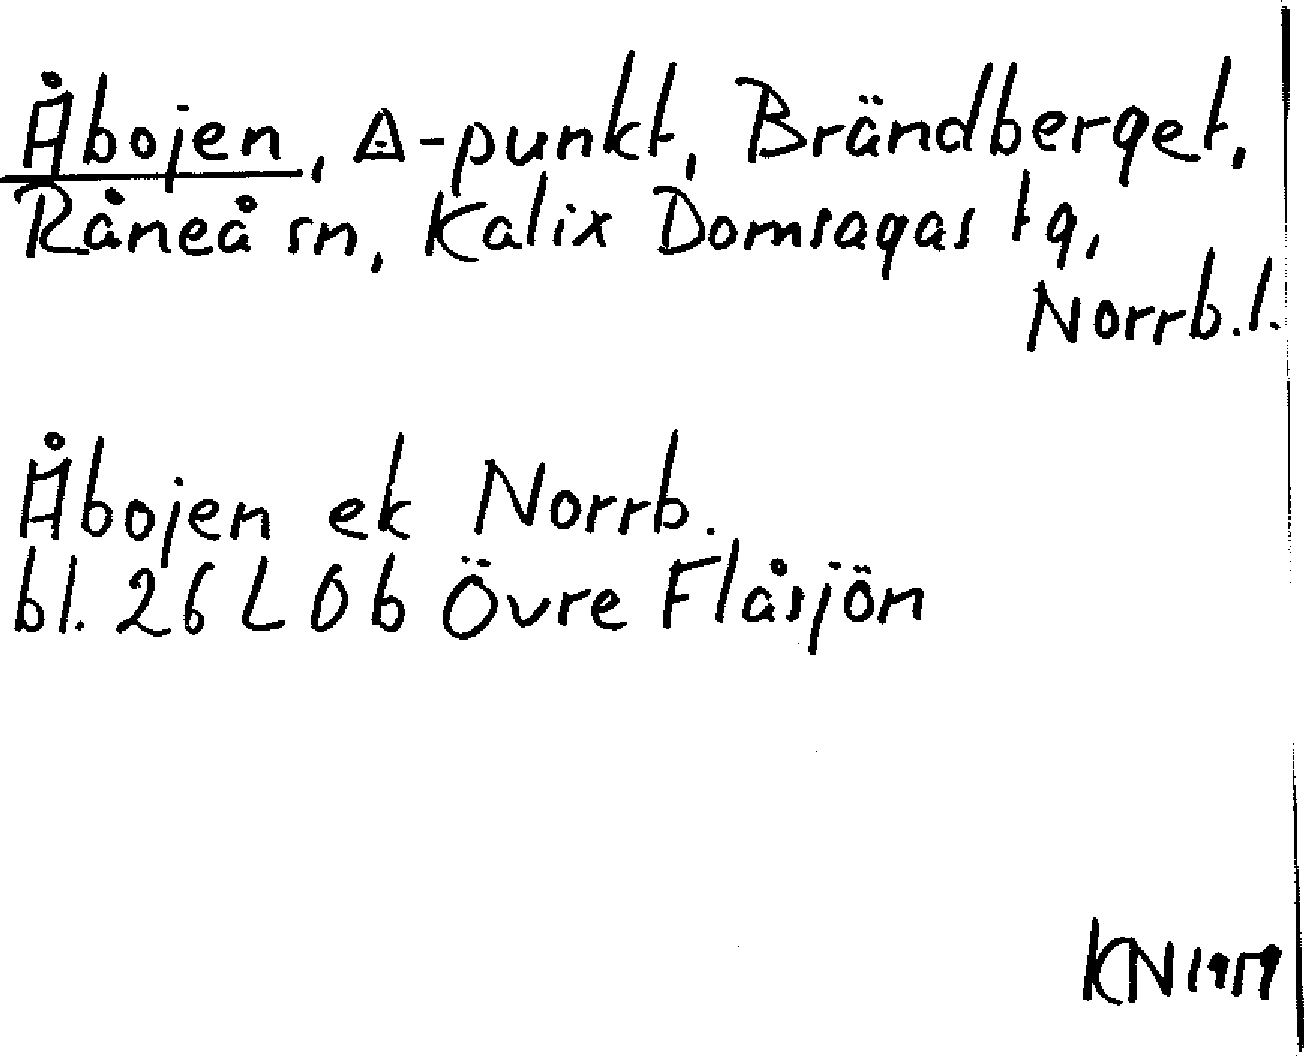 Åbojen, △-punkt, Brändberget,
Råneå sn, Kalix Domsagas tg,
Norrb.l.
Åbojen ek Norrb.
bl. 26 L 0b Övre Flåsjön
KN